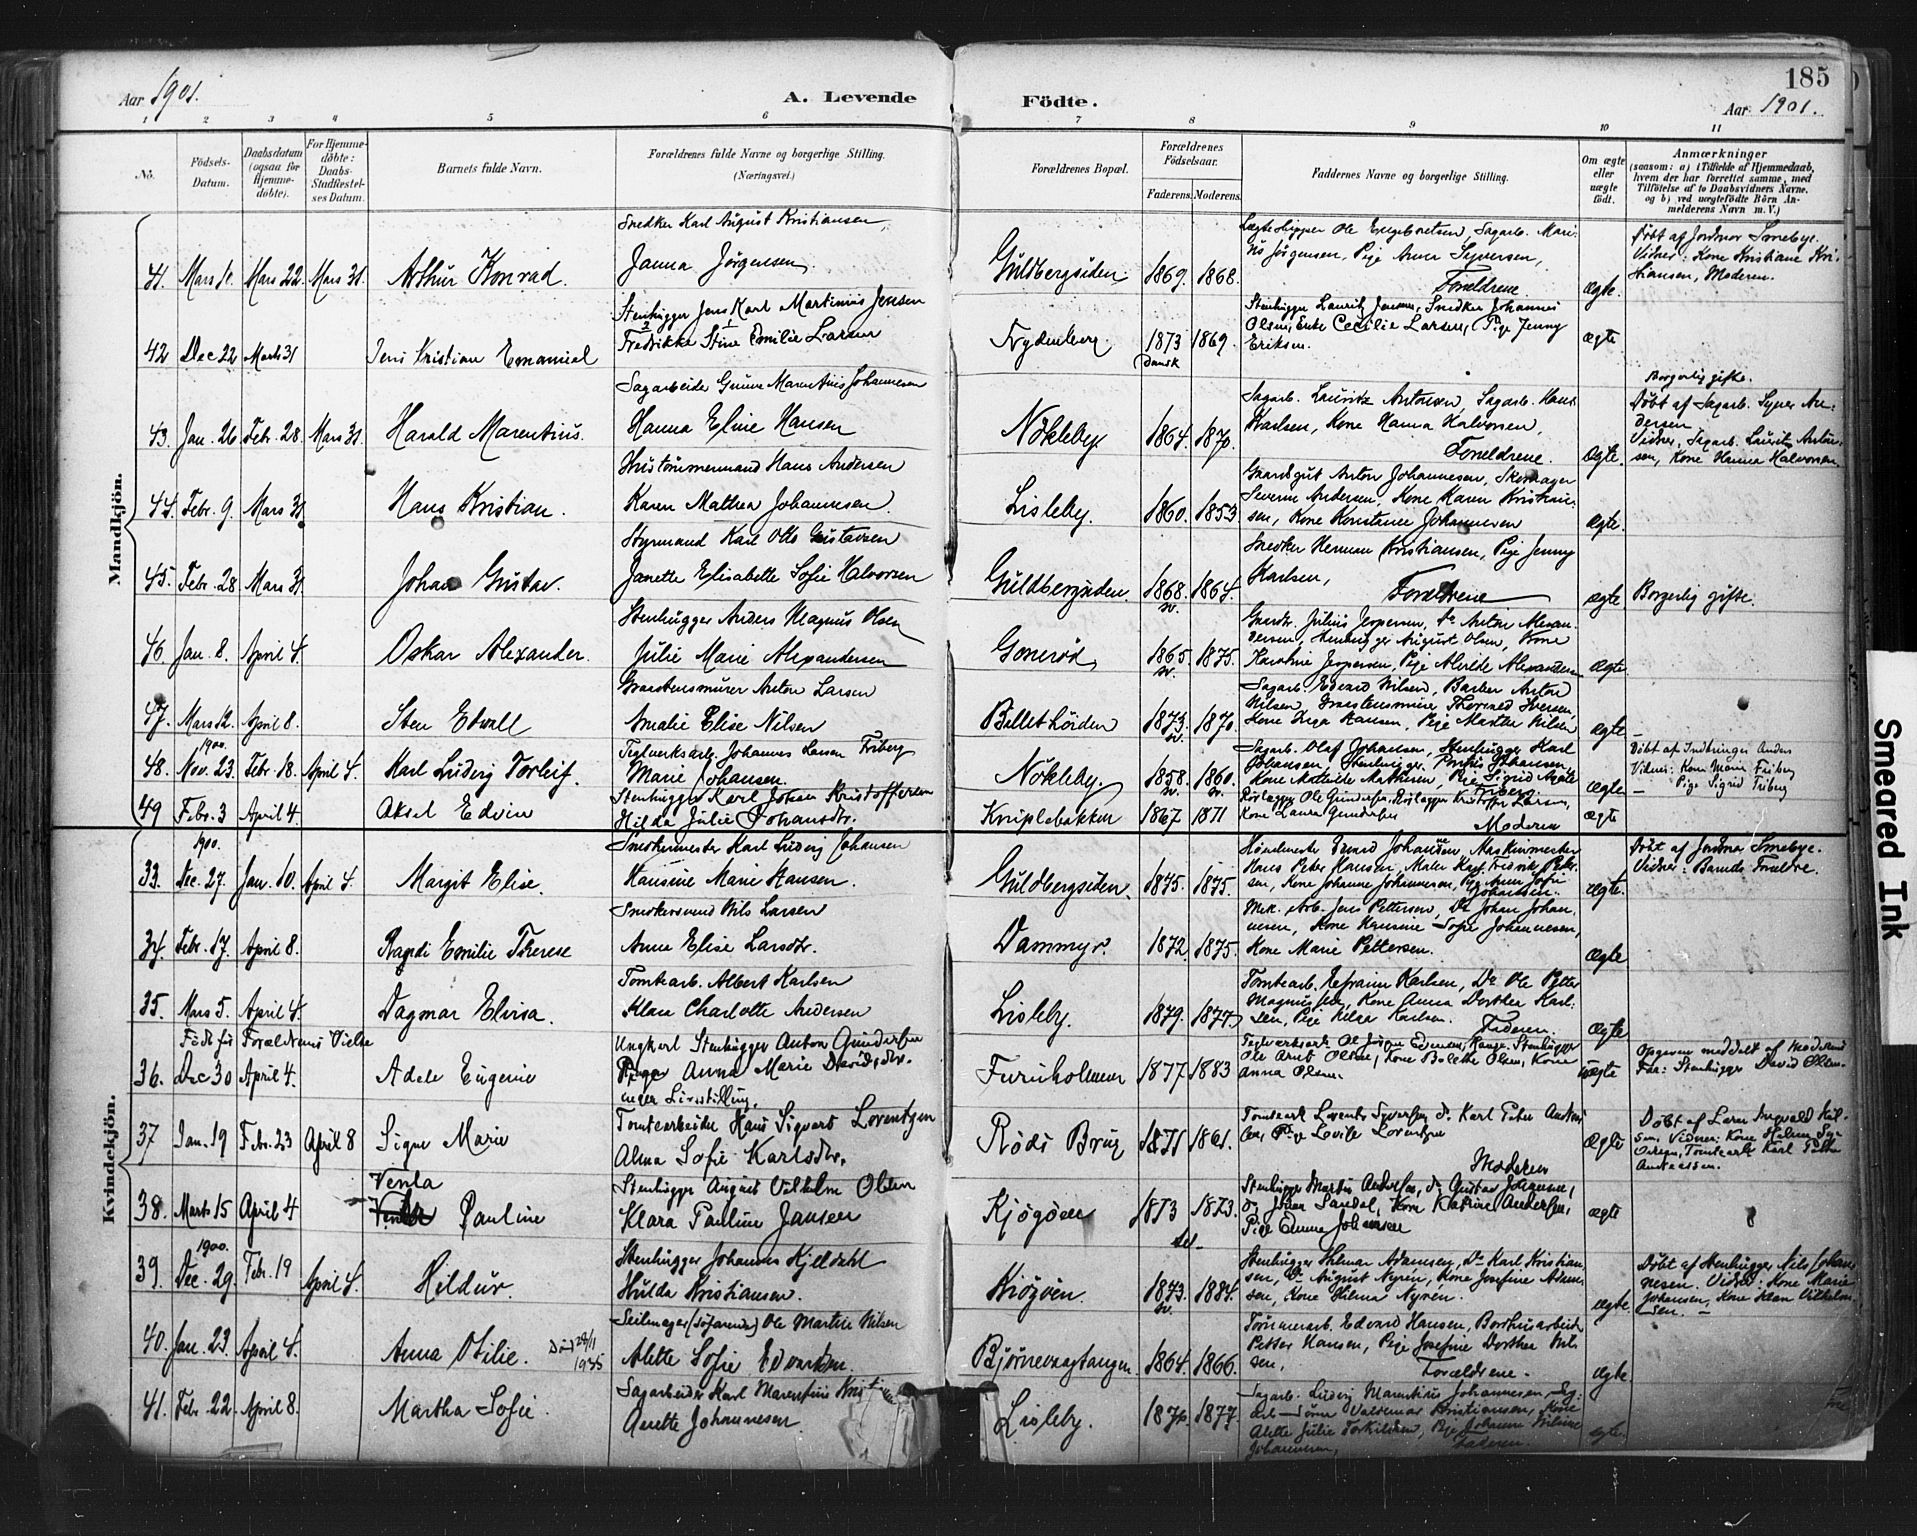 Aar 1901.
A. Levende Födte.
185
Aar 1901.
1 2 3 4 5 6 7 8 9 10 11
No.
Födsels-Datum.
Daabsdatum (ogsaa for Hjemmedöbte).
For Hjemmedöbte: Daabs-Stadfæstelses Datum.
Barnets fulde Navn.
Forældrenes fulde Navne og borgerlige Stilling.
(Næringsvei.)
Forældrenes Bopæl.
Forældrenes Födselsaar.
Faderens. Moderens.
Faddernes Navne og borgerlige Stilling.
Om ægte eller uægte födt.
Anmærkninger
(saasom: a) i Tilfælde af Hjemmedaab, hvem der har forrettet samme, med Tilföielse af to Daabsvidners Navne, og b) ved uægtefödte Börn Anmelderens Navn m. V.)
Mandkjön.
Snedker Karl August Kristiansen,
41. Mars 10. Mars 22. Mars 31. Arthur Konrad. Janna Jörgensen. Guldbergsiden. 1869. 1868.
Ole Engebretsen, Sagarb. Marinus Jörgensen, Pige Anna Syversen, Foreldrene. ægte.
Döbt af Jordmor Smebye. Vidner: Kone Kristiane Kristiansen, Moderen.
Stenhugger Jens Karl Martinius Jensen
42 Dec 22 Marts 31 Jens Kristian Emanuel Fredrikke Stine Emilie Larsen Nydenberg. 1873 Dansk 1869.
Stenhugger Lauritz Jensen, Snedker Johannes Olsen, Enke Cecilie Larsen, Pige Jenny Eriksen. ægte
Sagarbeider Gunnar Marentius Johannesen
43. Jan. 26. Febr. 28. Mars 31. Harald Marentius. Hanna Eline Hansen Nökleby. 1864. 1870.
Sagarb. Lauritz Antonsen, Sagarb. Hans Karlsen, Kone Hanna Halvorsen, Foreldrene. ægte.
Borgerlig gifte.
Döbt af Sagarb. Syver Andersen
Vidner, Sagarb. Lauritz Antonsen, Kone Hanna Halvorsen
Hustömmermand Hans Andersen
44. Febr. 9. Mars 31. Hans Kristian. Karen Mathea Johannesen. Lisleby. 1860. 1853
Gaardsgut Anton Johannesen, Skomager Severin Andersen, Kone Karen Kristiansen, Kone Konstance Johannesen ægte.
Styrmand Karl Otto Gustavsen
45. Febr. 28 Mars 31. Johan Gustav. Janette Elisabette Sofie Halvorsen Guldbergsiden. 1868. sv. 1864.
Snedker Herman Kristiansen, Pige Jenny Karlsen, Foreldrene ægte Borgerlig gifte.
Stenhugger Anders Magnus Olsen
46 Jan. 8. April 4. Oskar Alexander. Julie Marie Alexandersen Goneröd 1865. sv. 1875.
Gaardbr. Julius Jespersen, do Anton Alexandersen, Stenhugger August Olsen, Kone Karoline Jespersen, Pige Alvilde Alexandersen ægte.
Graastensmurer Anton Larsen
47. Mars 12. April 8. Sten Edvall Amalie Elise Nilsen 1873. sv. 1870.
Sagarb. Edvard Nilsen, Barber Anton Nilsen Graastensmurer Thorvald Iversen, Kone Inga Hansen, Pige Martha Nilsen ægte
1900.
48. Nov. 23. Febr. 18. April 4. Karl Ludvig Torleif. Teglverksarb. Johannes Larsen Friberg Marie Johansen. Nökleby. 1858. sv. 1860. sv.
Sagarb. Olaf Johansen, Stenhugger Karl Johansen, Stenhugger Johansen, Kone Matilde Mathisen, Pige Sigrid Agate Friberg. ægte
Vidner: Kone Marie Friberg
Pige Sigrid Friberg
49 Febr. 3 April 4. Aksel Edvin Stenhugger Karl Johan Kristoffersen Hilda Julie Johansdtr. Kniplebakken 1867. 1871
Rörlægger Ole Gundersen, Rörlægger Kristoffer Larsen, Kone Laura Gundersen Moderen ægte
Kvindekjön.
1900.
33. Dec. 27. Jan. 10. April 4. Margit Elise. Smedkermester Karl Ludvig Johansen Hansine Marie Hansen. Guldbergsiden. 1875. 1875.
Edvard Johansen, Maskinmester Hans Peter Hansen, Maler Karl Fredrik Petersen, Kone Johanne Johannesen, Pige Anna Sofie Johansen. ægte.
Döbt af Jordmor Smebye. Vidner: Barnets Foreldre.
Smedkersvend Nils Larsen
34. Febr. 17. April 8. Ragdi Emilie Therese Anna Elise Larsdtr. Dammyr. 1872. 1875.
Mek. Arb. Jens Pettersen, Do Johan Johannesen, Kone Hansine Sofie Johannesen, Kone Marie Pettersen. ægte
Tomtearb. Albert Karlsen
35. Mars 5. April 4. Dagmar Elvisa. Klara Charlotte Andersen Lisleby. 1879. 1877.
Tomtearb. Efraim Karlsen, Do Ole Petter Magnussen, Kone Anna Dorthea Karlsen, Pige Helga Karlsen. Faderen. ægte
Födt för Forældrenes Vielse
36. Dec 30 April 4. Adele Eugenie Ungkarl Stenhugger Anton Gundersen Pige Anna Marie Davidsdtr. uden Livsstilling. Furuholmen 1877 1883
Ole Arnt Olsen, Kone Bolette Olsen, Kone Anna Olsen. uægte
Opgaven meddelt af Moderens Far: Stenhugger David Olsen.
37 Jan. 19 Febr. 23 April 8 Signe Marie Tomtearbeider Hans Sigvard Lorentzen Alma Sofie Karlsdtr. Röds Brug 1871 1861.
Tomtearb. Lorentz Syversen, do Karl Peter Andreassen, Pige Lovise Lorentzen Moderen ægte
Döbt af Lærer Ingvald Nilsen. Vidner: Kone Helene Tomtearb Karl Petter Andreassen.
38. Marts 15 April 4 Venla Pauline Stenhugger August Vilhelm Olsen Klara Pauline Jansen Kjögöen 1873 1873.
Stenhugger Martin Andersen, do Gustav Johansen, do Johan Sandel, Kone Katrine Andersen, Pige Emma Johansen ægte
1900.
39. Dec. 29. Febr. 19 April 4. Hildur. Stenhugger Johannes Kjelldahl Hulda Kristiansen. Kiögöen. 1873. sv. 1884.
Stenhugger Hilmar Adamsen, Do Karl Kristiansen, Do August Nyren, Kone Josefine Adamsen, Kone Hilma Nyren. ægte
Döbt af Stenhugger Nils Johannesen. Vidner: Kone Marie Johansen, Kone Klara Vilhelmsen.
Seilmager (Söfarende) Ole Martin Nilsen
40. Jan. 23. April 4. Anna Otilie. Död 28/11 1935 Alette Sofie Edvardsen. Björnevaagtangen 1864. 1866.
Tömmerarb. Edvard Hansen, Borthusarbeider Petter Hansen, Pige Josefine Dorthea Nilsen, Forældrene. ægte.
41. Febr. 22. April 8. Martha Sofie Sagarbeider Karl Marentius Anette Johannesen Lisleby. 1870. 1877.
Sagarb. Ludvig Marentius Johannesen, Valdemar Kristiansen, Kone Alette Julie Torkildsen, Pige Johanne Nilsine Johannesen, Faderen. ægte.
Smeared Ink